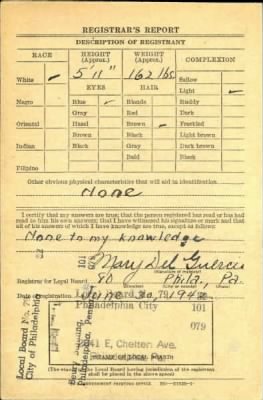 REGISTRAR'S REPORT
DESCRIPTION OF REGISTRANT
RACE HEIGHT (Approx.) WEIGHT (Approx.) COMPLEXION
5' 11" 162 lbs.
White ✓ Sallow
EYES HAIR Light ✓
Negro Blue ✓ Blonde Ruddy
Gray Red Dark
Oriental Hazel Brown ✓ Freckled
Brown Black Light brown
Indian Black Gray Dark brown
Bald Black
Filipino
Other obvious physical characteristics that will aid in identification
None
I certify that my answers are true; that the person registered has read or has had read to him his own answers; that I have witnessed his signature or mark and that all of his answers of which I have knowledge are true, except as follows:
None to my knowledge
Mary Del
(Signature of registrar)
Registrar for Local Board 80 Phila., Pa.
Date of registration June 30, 1942
Local Board No.
City of Philadelphia
Philadelphia City 101
079
101
079
E. Chelten Ave.
(STAMP OF LOCAL BOARD)
(The stamp of the Local Board having jurisdiction of the registrant shall be placed in the above space)
GOVERNMENT PRINTING OFFICE